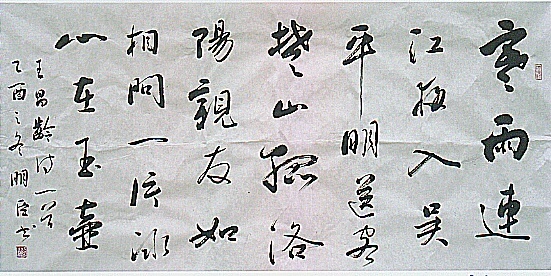 寒雨連
江夜入吴
平明送客
楚山孤洛
陽親友如
相問一片冰
心在玉壺
王昌齡诗一首
乙酉之冬明臣书